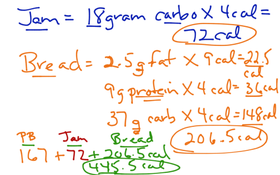 Jam = 18gram carbo X 4cal =
72cal
Bread = 2.5g fat X 9cal = 22.5
cal
9g protein X 4cal = 36cal
37g carb X 4cal = 148cal
206.5cal
PB Jam Bread
167 + 72 + 206.5cal
445.5cal